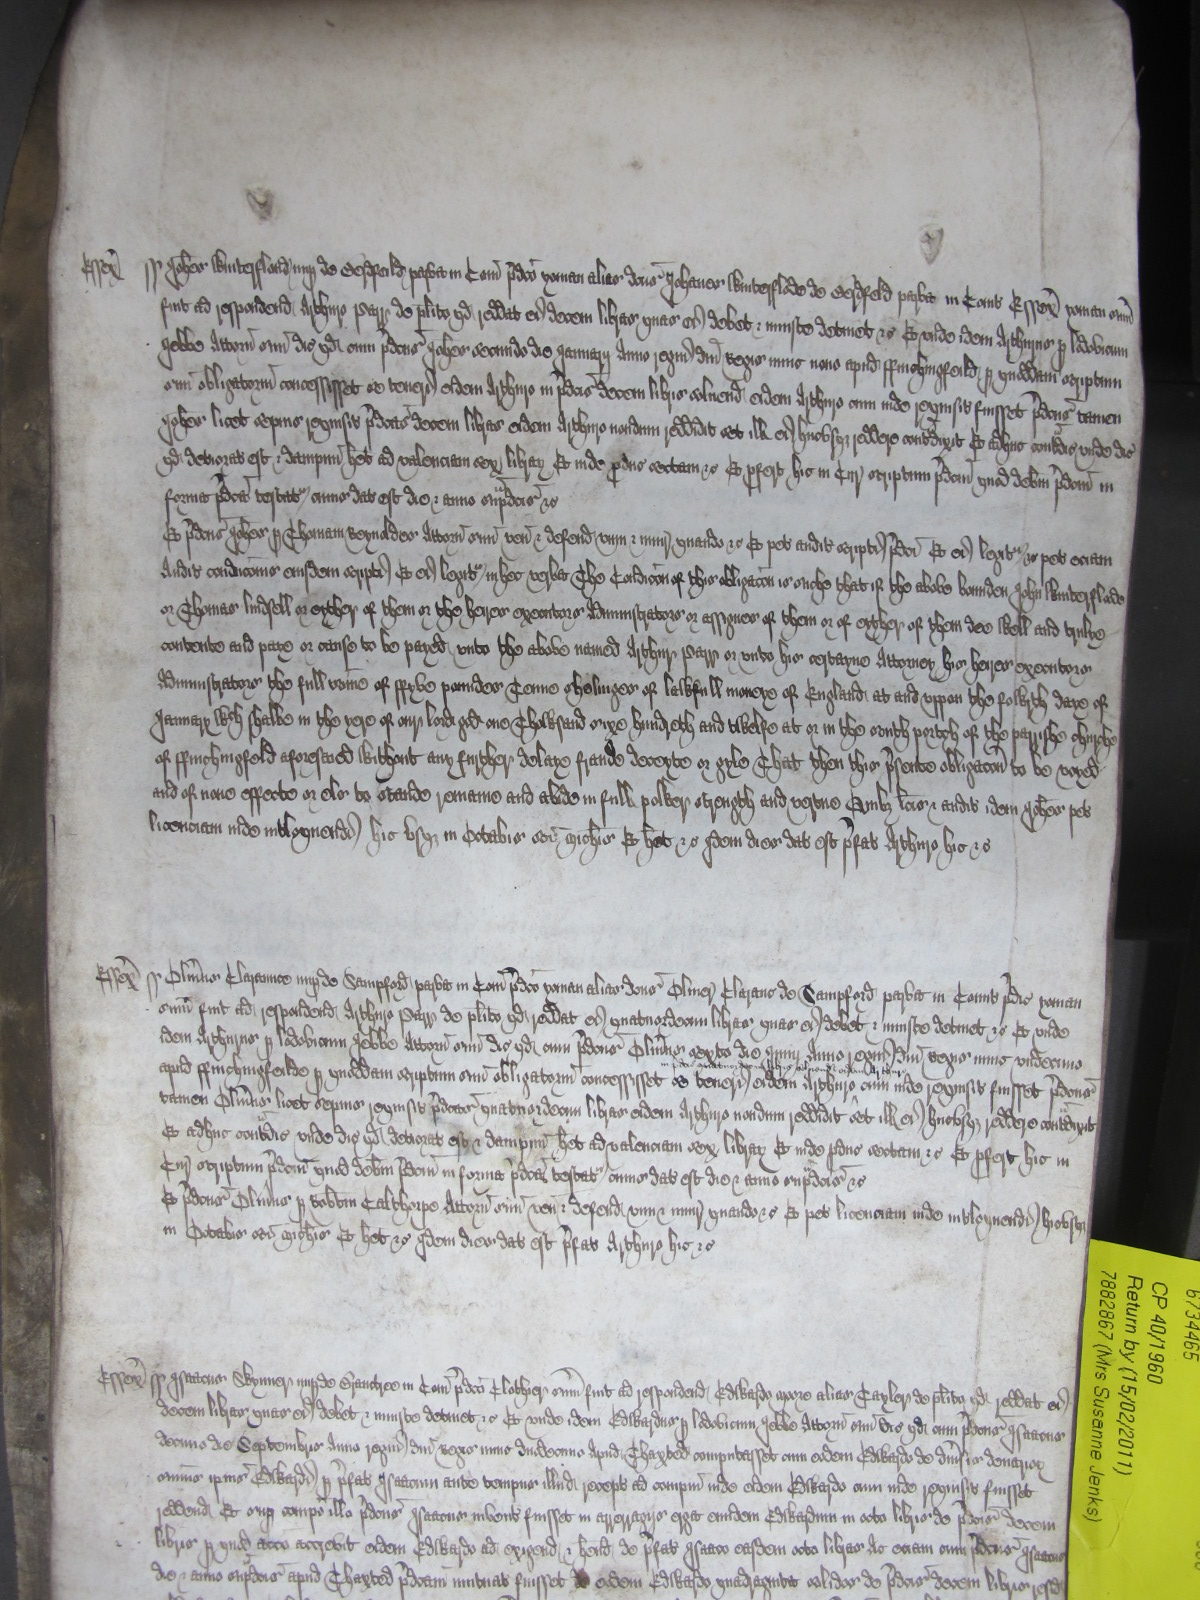 Essex ss Johes Winterflond nup de Berdfeild parva in Com p̄dco yoman alias dcus Johannes Winterflode de Berdfeld parva in Comit Essex yoman sum
fuit ad respondend Arthuro Parr de plito qd reddat ei decem libras quas ei debet & iniuste detinet &c Et unde idem Arthurus p lodovicum
Jebbe Attorn suum dic qd cum p̄dcus Johes secundo die Januarij Anno regni dni Regis nunc nono apud ffinchingfeild p quoddam scriptum
suum obligatorium concessisset se teneri eidem Arthuro in p̄dcis decem libris solvend eidem Arthuro cum inde requisit fuisset p̄dcus tamen
Johes licet sepius requisit p̄dcas decem libras eidem Arthuro nondum reddidit set ill ei hucusq reddere contradixit Et adhuc contradic unde dic
qd deteriorat est & dampnum het ad valenciam sex librar Et inde producit sectam &c Et profert hic in Cur scriptum p̄dcum quod debitum p̄dcum in
forma p̄dca testat cuius dat est die & anno sup̄dcis &c
Et p̄dcus Johes p Thomam Reynoldes Attorn suum ven & defend vim & iniur quando &c Et pet audit scripti p̄dci Et ei legit &c pet eciam
Audit condicionis eiusdem scripti Et ei legit in hec verba The Condicon of this obligacon is suche that if the above bounden John Winterflode
or Thomas lindsell or eyther of them or the heires executors Administrators or assignes of them or of eyther of them doe Well and trulye
contente and paye or cause to be payed unto the above named Arthur Parr or unto his certayne Attorney his heires executors
Administrators the full some of ffyve poundes Tenne shelinges of lawfull moneye of England at and uppon the fowrth daye of
January Wch shalbe in the yere of our lord god one Thowsand sixe hundreth and twelfe at or in the south portch of the parrishe churche
of ffinchingfeld aforesayed Without any further delaye fraude deceyte or gyle That then this p̄sente obligacon to be voyed
and of none effecte or els to stande remaine and abide in full power strength and vertue Quibz lcis & audit idem Johes pet
licenciam inde interloquendi hic usq in Octabis sci Michis Et het &c Idem dies dat est p̄fat Arthuro hic &c
Essex ss Oliverus Clarance nup de Sampford parva in Com p̄dco yoman alias dcus Oliver Clarans de Sampford parva in Comit p̄dic yoman
sum fuit ad respondend Arthuro Parr de plito qd reddat ei quatuordecim libras quas ei debet & iniuste detinet &c Et unde
idem Arthurus p lodovicum Jebbe Attorn suum dic qd cum p̄dcus Oliverus sexto die Junij Anno regni dni Regis nunc undecimo
in p̄dcis quatuordecim libris solvend eidem Arthuro
apud ffinchingfeilde p quoddam scriptum suum obligatorium concessisset se teneri eidem Arthuro cum inde requisit fuisset p̄dcus
tamen Oliverus licet sepius requisit p̄dcas quatuordecim libras eidem Arthuro nondum reddidit set ill ei hucusq reddere contradixit
Et adhuc contradic unde dic qd deteriorat est & dampnum het ad valenciam sex librar Et inde producit sectam &c Et profert hic in
Cur scriptum p̄dcum quod debitum p̄dcum in forma p̄dca testat cuius dat est die & anno sup̄dcis &c
Et p̄dcus Oliverus p Robtum Calthorpe Attorn suum ven & defend vim & iniur quando &c Et pet licenciam inde interloquendi hic usq
in Octabis sci Michis Et het &c Idem dies dat est p̄fat Arthuro hic &c
Essex ss Isaacus Skynner nup de in Com p̄dco Clothier sum fuit ad respondend Edwardo More alias Taylor de plito qd reddat ei
decem libras quas ei debet & iniuste detinet &c Et unde idem Edwardus p lodovicum Jebbe Attorn suum dic qd cum p̄dcus Isaacus
decimo die Septembris Anno regni dni Regis nunc duodecimo Apud Thaxted computasset cum eidem Edwardo de divsis denarior
summis ipius Edwardi p p̄fat Isaacum ante tempus illud recept ad compum inde eidem Edwardo cum inde requisit fuisset
reddend Et sup compo illo p̄dcus Isaacus invent fuisset in arreragijs erga eundem Edwardum in octo libris de p̄dcis decem
libris p quod accio accrevit eidem Edwardo ad exigend & hend de p̄fat Isaaco easdem octo libras Ac eciam cum p̄dcus Isaacus
die & anno sup̄dcis apud Thaxted p̄dcam mutuat fuisset de eidem Edwardo quadraginta solidos de p̄dcis decem libris resid
6734465
CP 40/1960
Return by (15/02/2011)
7882867 (Mrs Susanne Jenks)